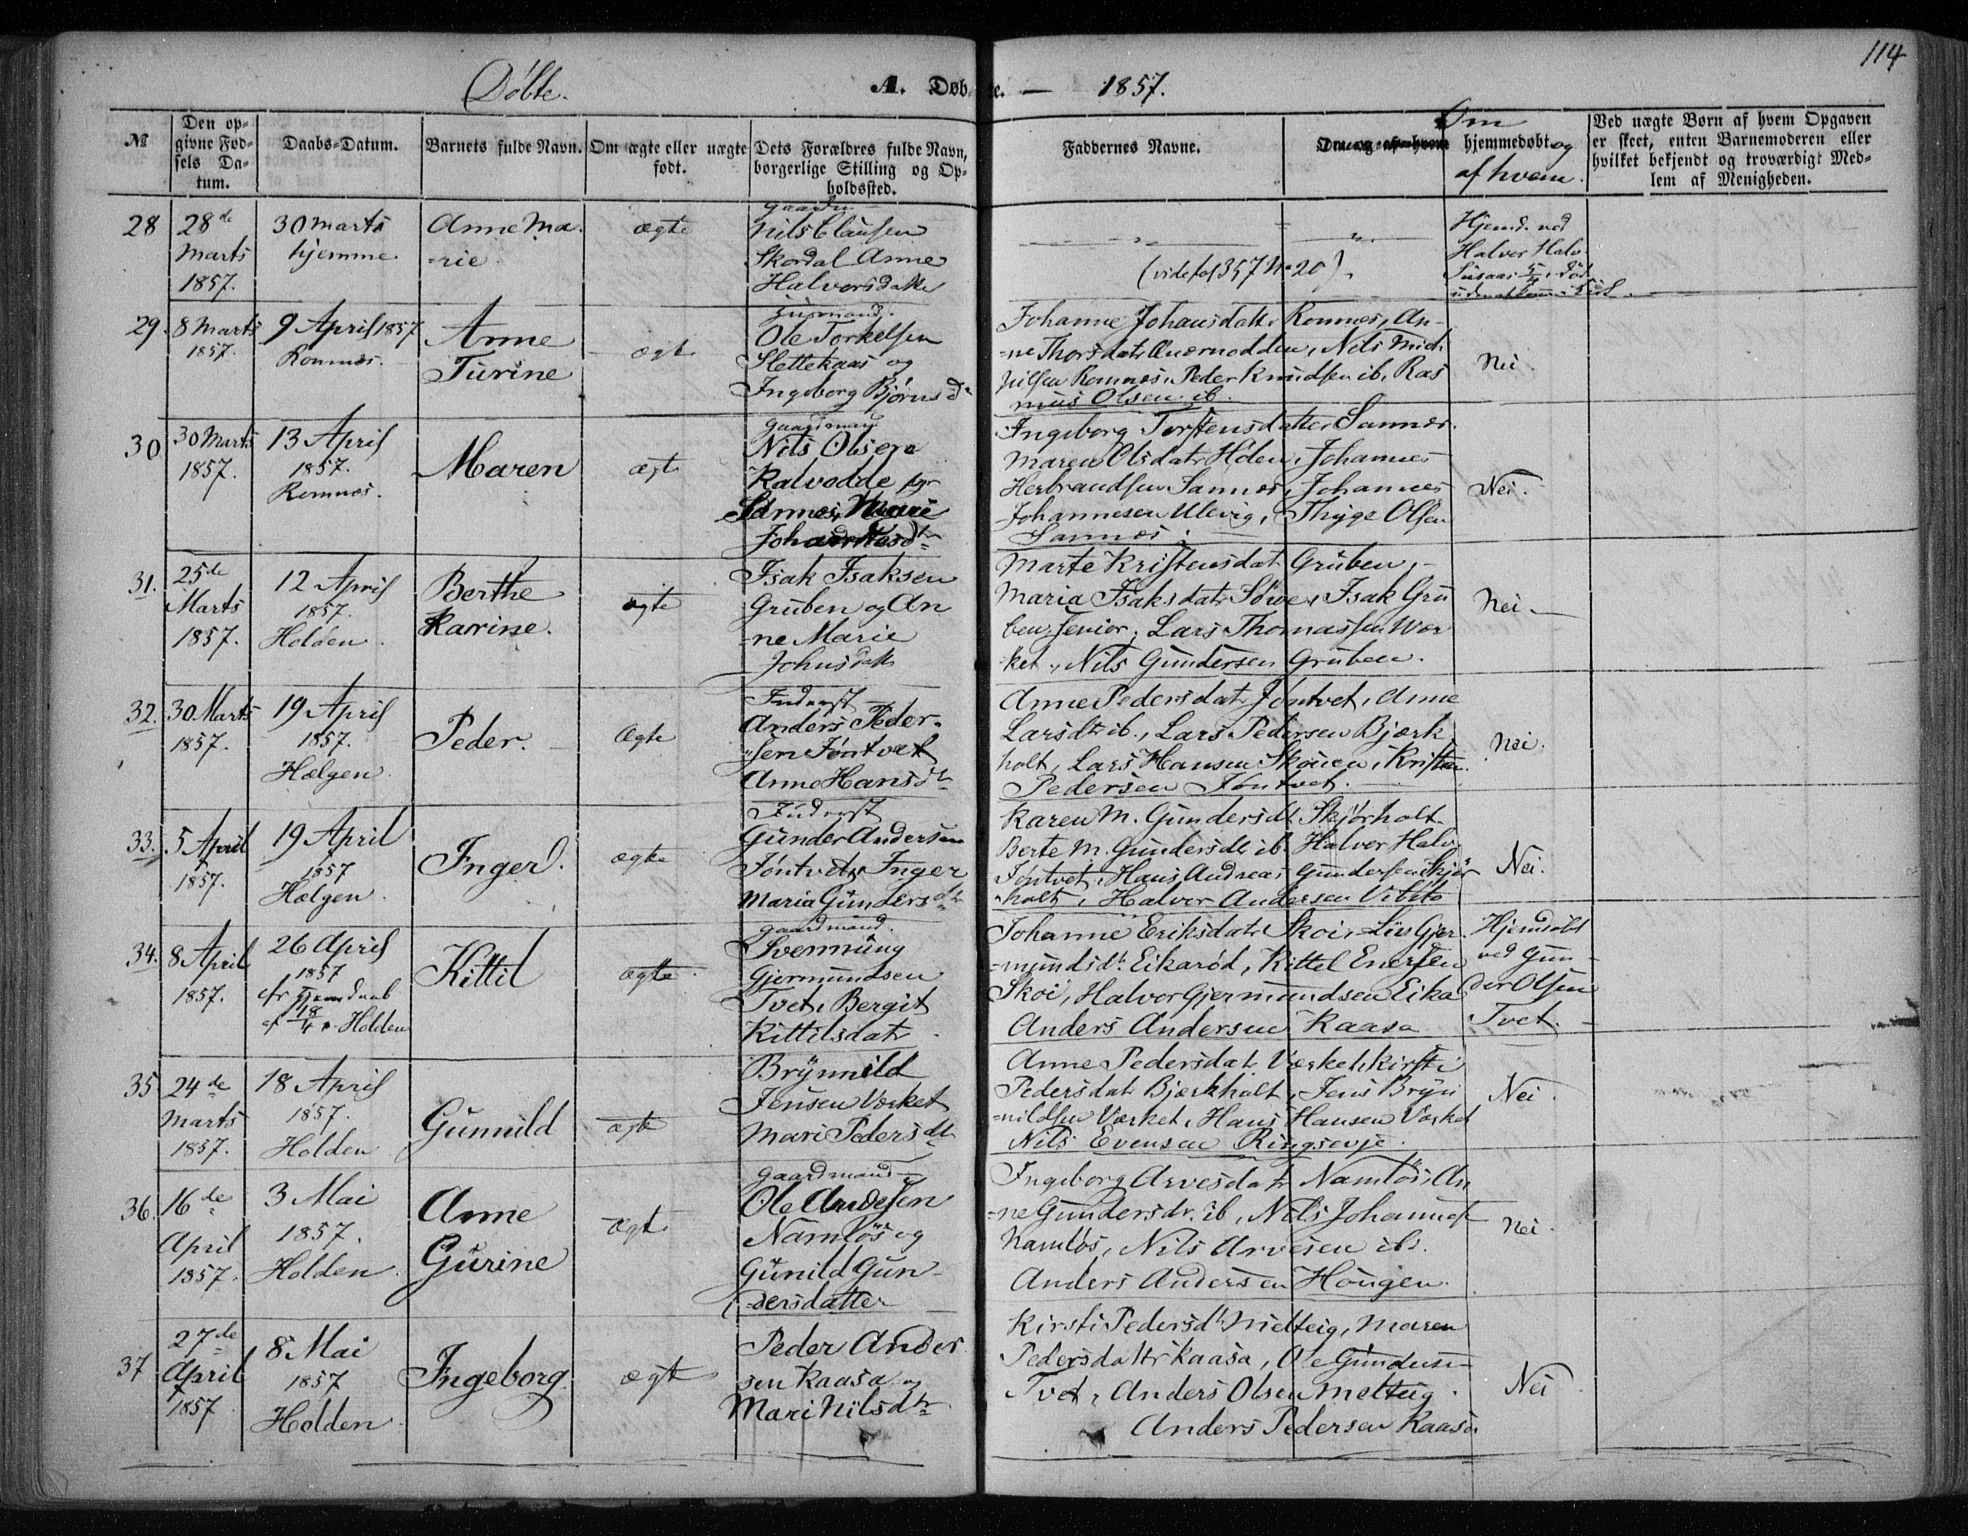 114
Døbte.
A. Døbte. — 1857.
№
Den op-
givne Fød-
sels Da-
tum.
Daabs-Datum.
Barnets fulde Navn.
Om ægte eller uægte
født.
Dets Forældres fulde Navn,
borgerlige Stilling og Op-
holdssted.
Faddernes Navne.
Om
hjemmedøbt og
af hvem.
Ved uægte Børn af hvem Opgaven
er skeet, enten Barnemoderen eller
hvilket bekjendt og troværdigt Med-
lem af Menigheden.
28
28de
Marts
1857.
30 Marts
hjemme.
Anne Ma-
-rie.
ægte
Nils Clausen
Skordal Anne
Halvorsdatte
(vide fol 357 No 20).
Hjemd. ved
Halver Halv
29.
8 Marts
1857.
9 April 1857
Romnæs.
Anne
Turine
ægt
Ole Torkelsen
Slettekaas og
Ingeborg Bjørnsd
Johanne Johansdatt Romnes, An-
-ne Thorsdatr , Nils
Romnæs, Peder Knudsen ib, Ras
mus Olsen ib.
Nei
30
30 Marts
1857.
13 April
1857.
Romnæs.
Maren
ægt
Gaardmand
Nils Olsen
Kalvodde
Sannes, Marie
Ingeborg Torstensdatter Sannes.
Maren Olsdatr Holen, Johannes
Herbrandsen Sannes, Johannes
Johannesen Ulevig, Thyge Olsen
Sannes.
Nei.
31.
25de
Marts
1857.
12 April
1857.
Holden.
Berthe
Karine.
ægte
Isak Isaksen
Gruben og An
-ne Marie
Johnsdatt
Marte Kristensdat Gruben,
Maria Isaksdatr Søve, Isak Gru
ben Senior, Lars Thomassen Vær
ket, Nils Gundersen Gruben.
Nei.
32.
30. Marts
1857.
19 April
1857.
Hælgen.
Peder.
Ægte
Inderst
Anders Peder-
sen Jøntvet
Anne Hansdtr
Anne Pedersdatr Jøntvet, Anne
Larsdtr ib., Lars Pedersen Bjærk
holt, Lars Hansen Skouen, Kristen
Pedersen Jøntvet.
Nei.
33.
5 April
1857.
19 April
1857
Hælgen.
Inger
ægte
Inderst
Gunder Andersen
Jøntvet, Inger
Maria Gundersdtr
Karen M. Gundersdt Skjørholt
Berte M. Gundersdt ib. Halvor Halv
Jøntvet, Hans Andreas Gundersen Skjør
holt, Halver Andersen Vibito
Nei.
34.
8 April
1857.
26 April
1857
cfr Hjemmedaab
af 18/4 Holden
Kittil
ægte
Gaardmand.
Svennung
Gjermundsen
Tvet, Bergit
Kittilsdatr
Johanne Eriksdatr Skoi, Liv Gjer-
-mundsdt. Eikarød, Kittel Enersen
Skoi, Halvor Gjermundsen Eika
Anders Andersen Kaasa
Hjemdøbt
ved Gun-
der Olsen
Tvet.
35
24de
Marts
1857.
18 April
1857.
Holden
Gunnild
ægte
Brynnild
Jensen Værket
Mari Pedersdtr
Anne Pedersdat Værket, Kirsti
Pedersdat Bjærkholt, Jens Bryn
-nildsen Værket, Hans Hansen Værket
Nils Evensen Ringsevje.
Nei.
36.
16de
April
1857.
3 Mai
1857.
Holden.
Anne
Gurine
Ægt
Gaardmand
Ole Andersen
Namløs og
Gunild Gun-
-dersdatter
Ingeborg Arvesdatr Namløs, An
-ne Gundersdr. ib, Nils Johannes
Namløs, Nils Arvesen ib.
Anders Andersen Hougen.
Nei.
37
27de
April
1857
8 Mai
1857
Holden.
Ingeborg
ægt
Peder Anders
sen Kaasa og
Mari Nilsdtr
Kirsti Pedersdt Melteig, Maren
Pedersdattr Kaasa, Ole Gundersen
Tvet, Anders Olsen Melteig.
Anders Pedersen Kaasa
Nei